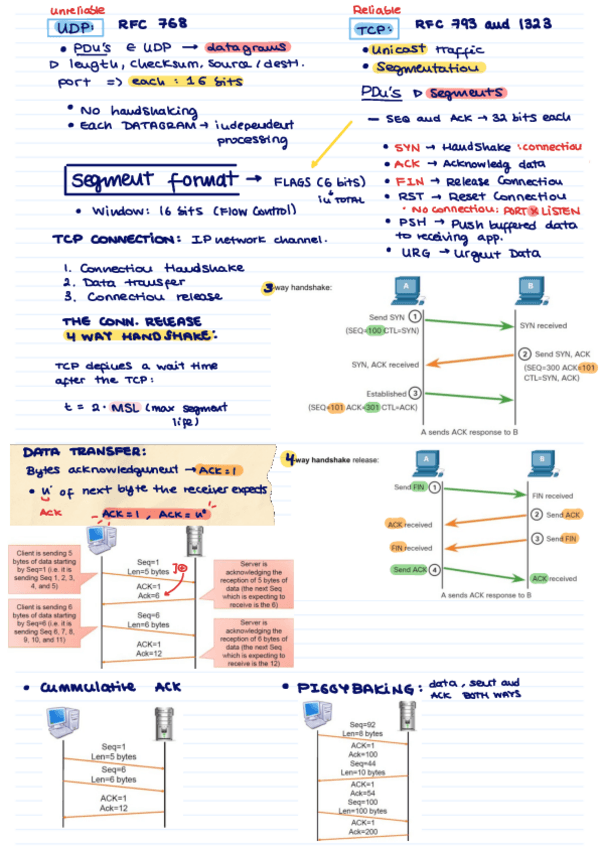 unreliable
UDP: RFC 768
• PDU's ∈ UDP → datagrams
▷ length, checksum, source/dest.
port => each: 16 bits
• No handshaking
• Each DATAGRAM → independent
processing
Reliable
TCP: RFC 793 and 1323
• Unicast traffic
• Segmentation
PDU's ▷ segments
— SEQ and ACK → 32 bits each
• SYN → Handshake : connection
• ACK → Acknowledg data
• FIN → Release Connection
• RST → Reset Connection
· No connection: PORT X LISTEN
• PSH → Push buffered data
to receiving app.
• URG → Urgent Data
Segment format → FLAGS (6 bits)
in TOTAL
• Window: 16 bits (Flow Control)
TCP CONNECTION: IP network channel.
1. Connection Handshake
2. Data transfer
3. Connection release
THE CONN. RELEASE
4 WAY HANDSHAKE:
TCP defines a wait time
after the TCP:
t = 2 · MSL (max segment
life)
3-way handshake:
A
B
Send SYN 1
(SEQ=100 CTL=SYN)
SYN received
2 Send SYN, ACK
(SEQ=300 ACK=101
CTL=SYN, ACK)
SYN, ACK received
Established 3
(SEQ=101 ACK=301 CTL=ACK)
A sends ACK response to B
DATA TRANSFER:
Bytes acknowledgment → ACK=1
• nº of next byte the receiver expects
ACK
ACK=1, ACK=nº
4-way handshake release:
A
B
Send FIN 1
FIN received
2 Send ACK
ACK received
3 Send FIN
FIN received
Send ACK 4
ACK received
A sends ACK response to B
Client is sending 5
bytes of data starting
by Seq=1 (i.e. it is
sending Seq 1, 2, 3,
4, and 5)
Seq=1
Len=5 bytes
ACK=1
Ack=6
Server is
acknowledging the
reception of 5 bytes of
data (the next Seq
which is expecting to
receive is the 6)
Client is sending 6
bytes of data starting
by Seq=6 (i.e. it is
sending Seq 6, 7, 8,
9, 10, and 11)
Seq=6
Len=6 bytes
ACK=1
Ack=12
Server is
acknowledging the
reception of 6 bytes of
data (the next Seq
which is expecting to
receive is the 12)
• Cummulative ACK
Seq=1
Len=5 bytes
Seq=6
Len=6 bytes
ACK=1
Ack=12
• PIGGYBAKING: data, sent and
ACK BOTH WAYS
Seq=92
Len=8 bytes
ACK=1
Ack=100
Seq=44
Len=10 bytes
ACK=1
Ack=54
Seq=100
Len=100 bytes
ACK=1
Ack=200